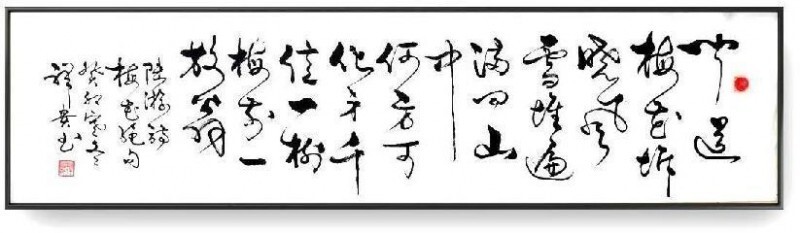 闻道
梅花坼
晓风
雪堆遍
满四山
中
何方可
化身千
亿一树
梅前一
放翁
陆游诗
梅花绝句
癸卯寒冬